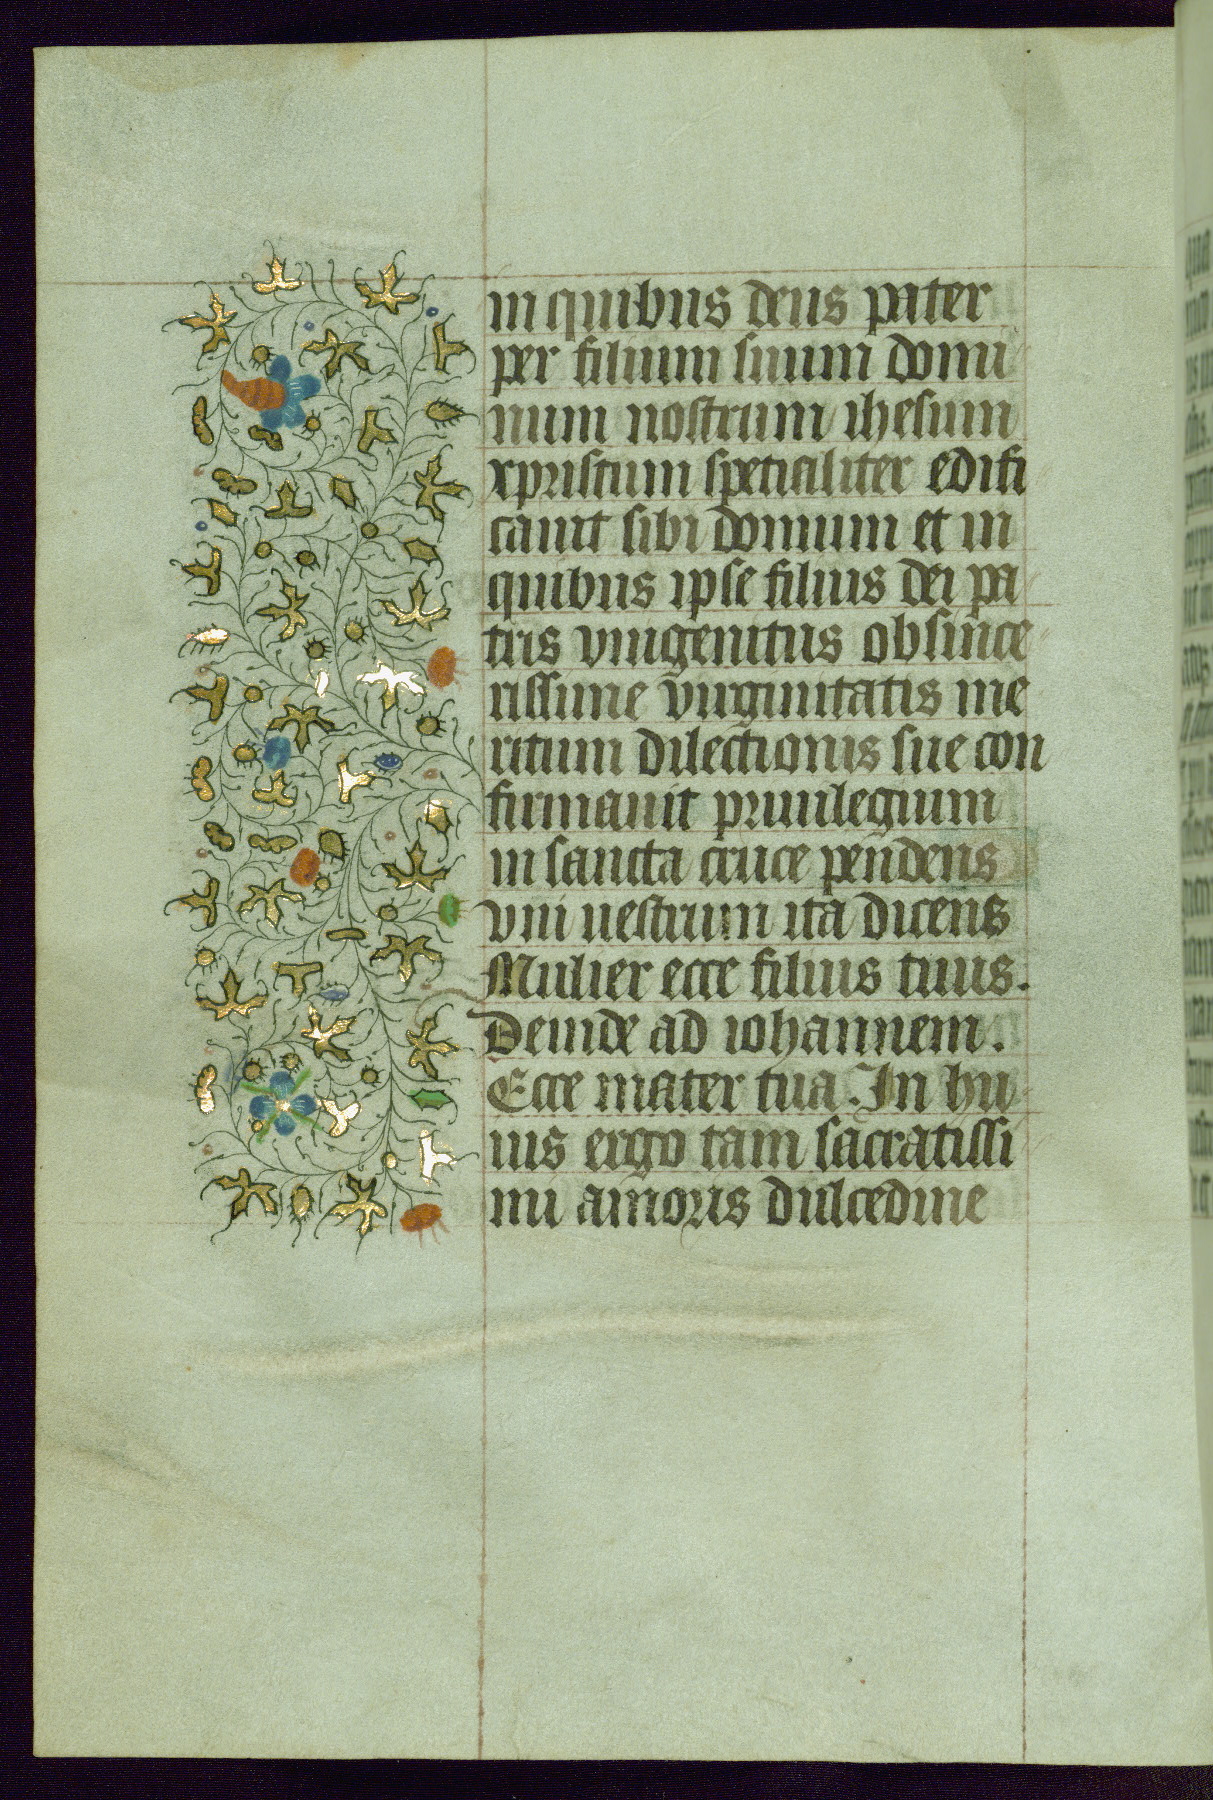 in quibus deus pater
per filium suum domi
num nostrum ihesum
xpristum spetialiter edifi
cauit sibi domum et in
quibus ipse filius dei pa
tris vnigenitus ob since
rissime virginitatis me
ritum dilectionis sue con
firmauit priuilegium
in sancta cruce pendens
vni uestrum ita dicens
Mulier ecce filius tuus.
Deinde ad iohannem.
Ecce mater tua. In hu
ius ergo tam sacratissi
mi amoris dulcedine